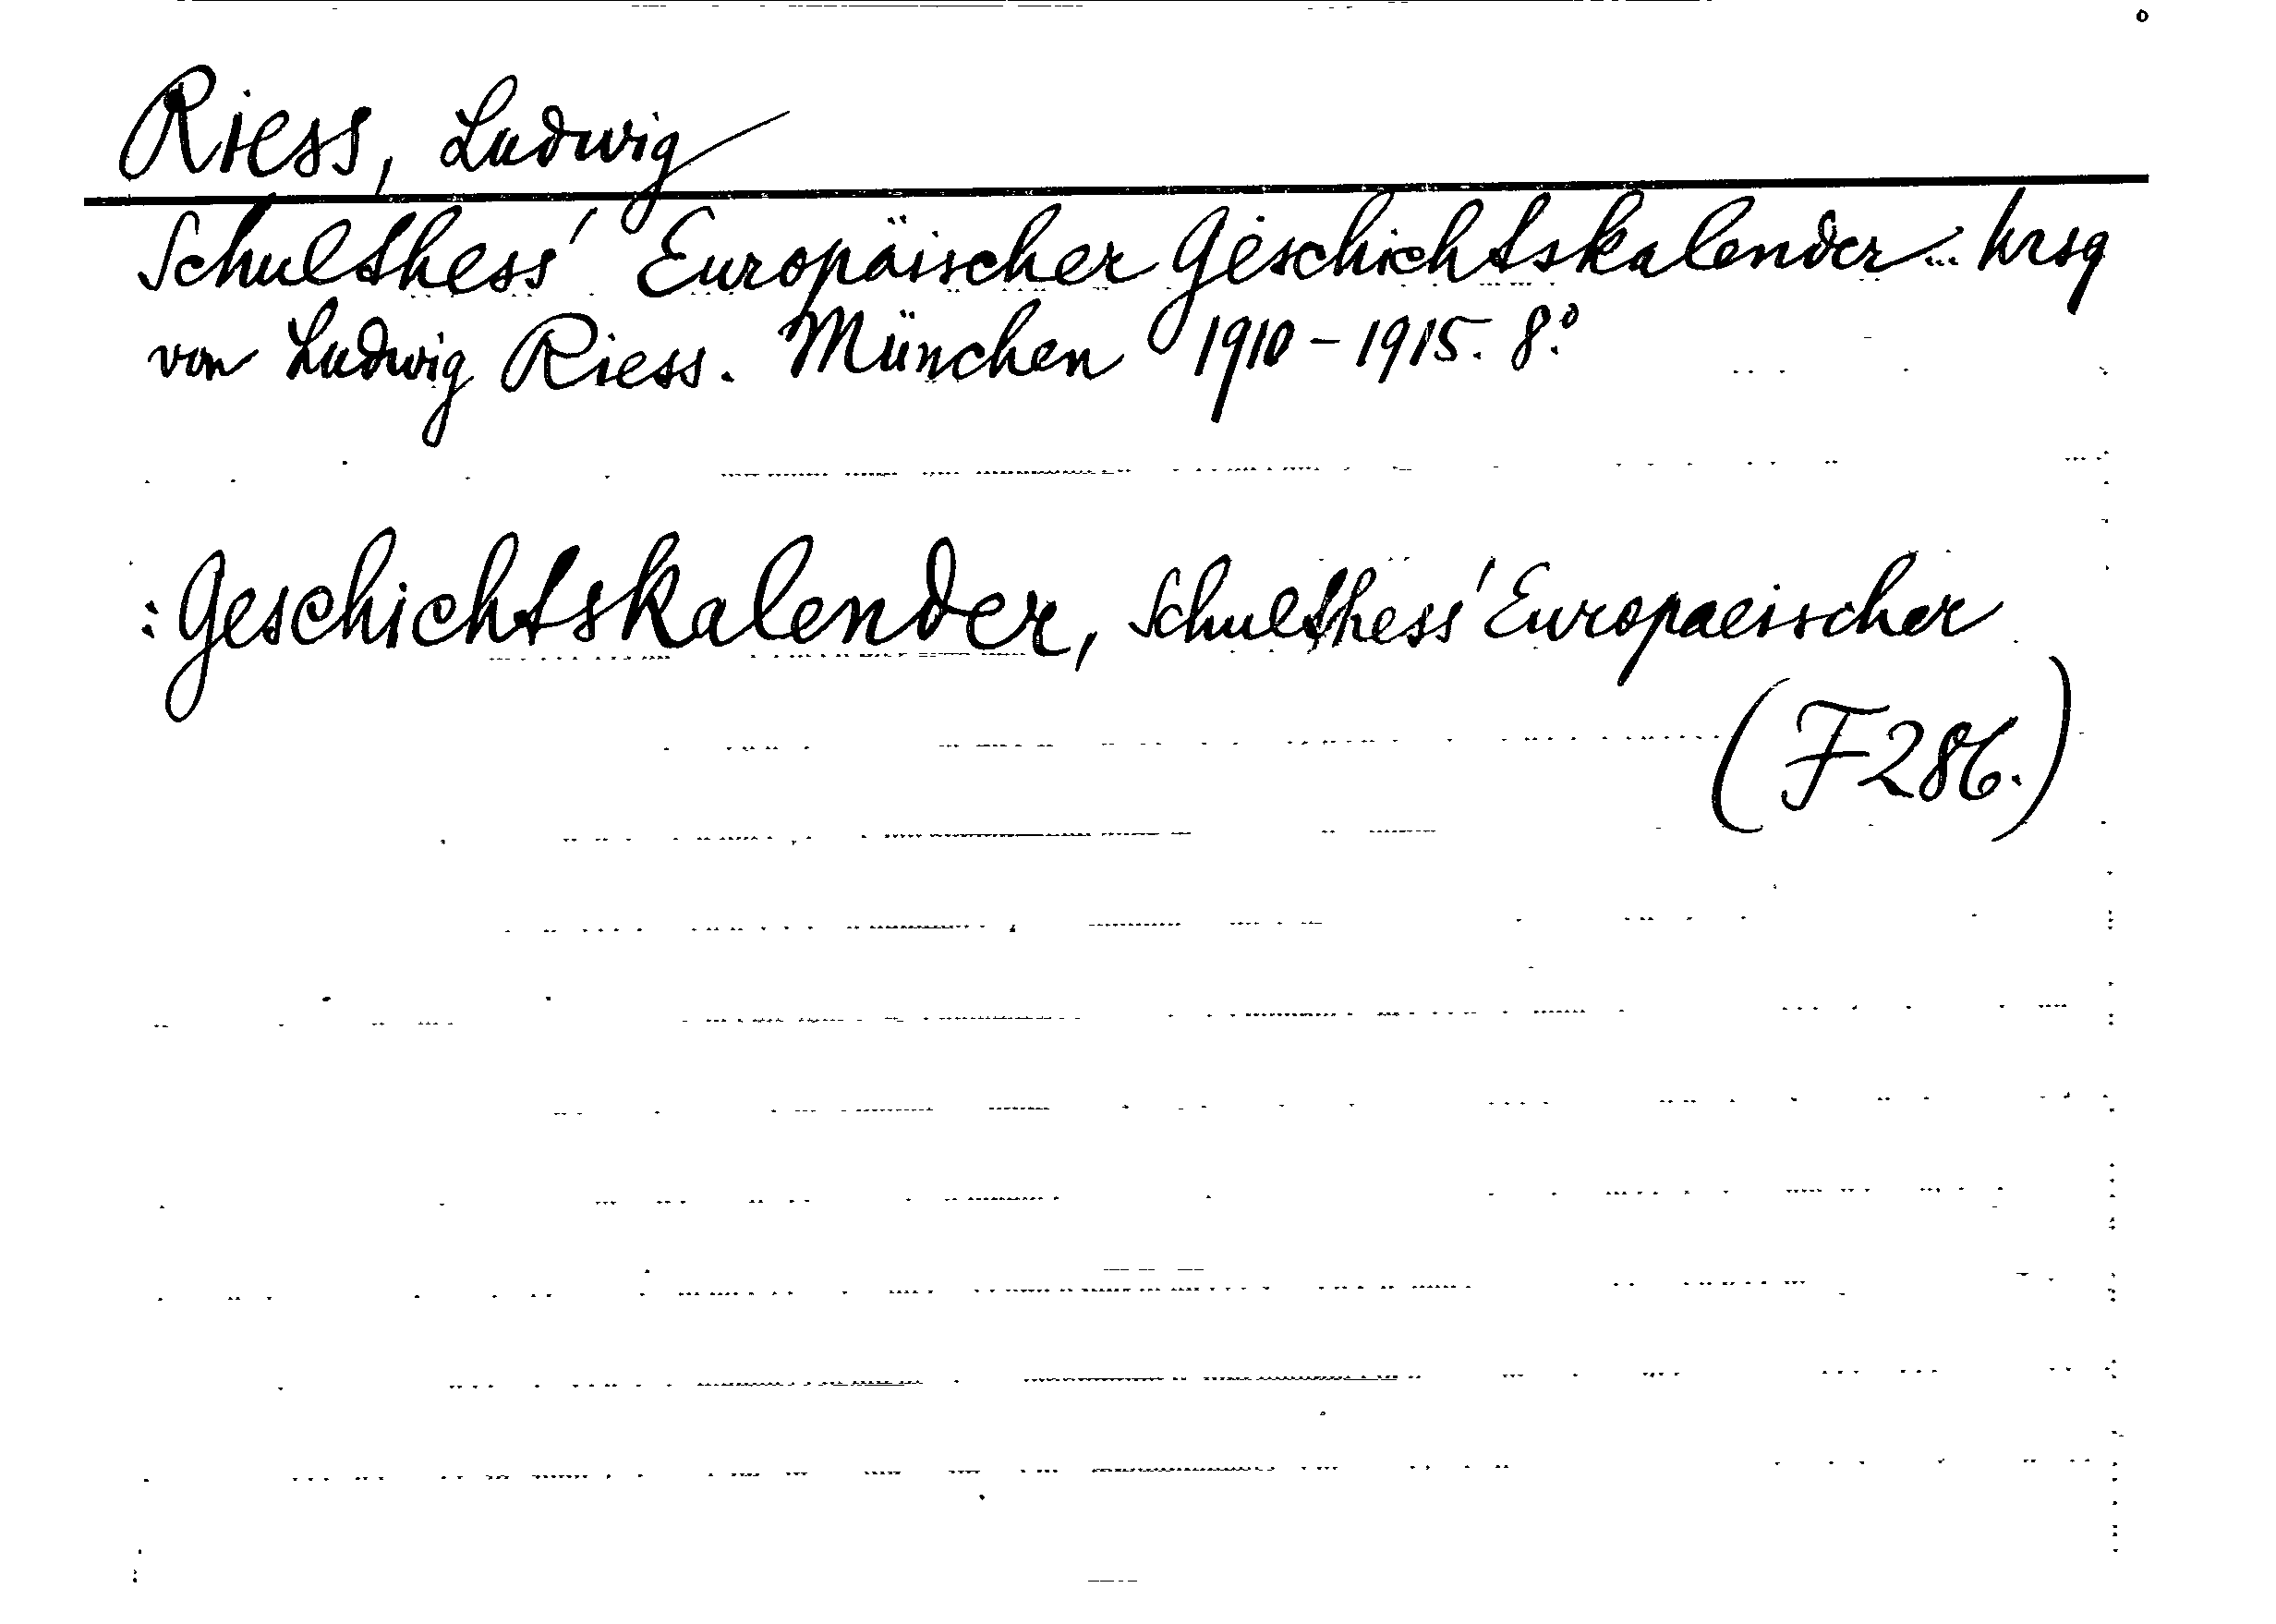 Riess, Ludwig
Schulthess' Europäischer Geschichtskalender... hrsg
von Ludwig Riess. München 1910-1915. 8.°
: Geschichtskalender, Schulthess' Europaeischer
(F286.)